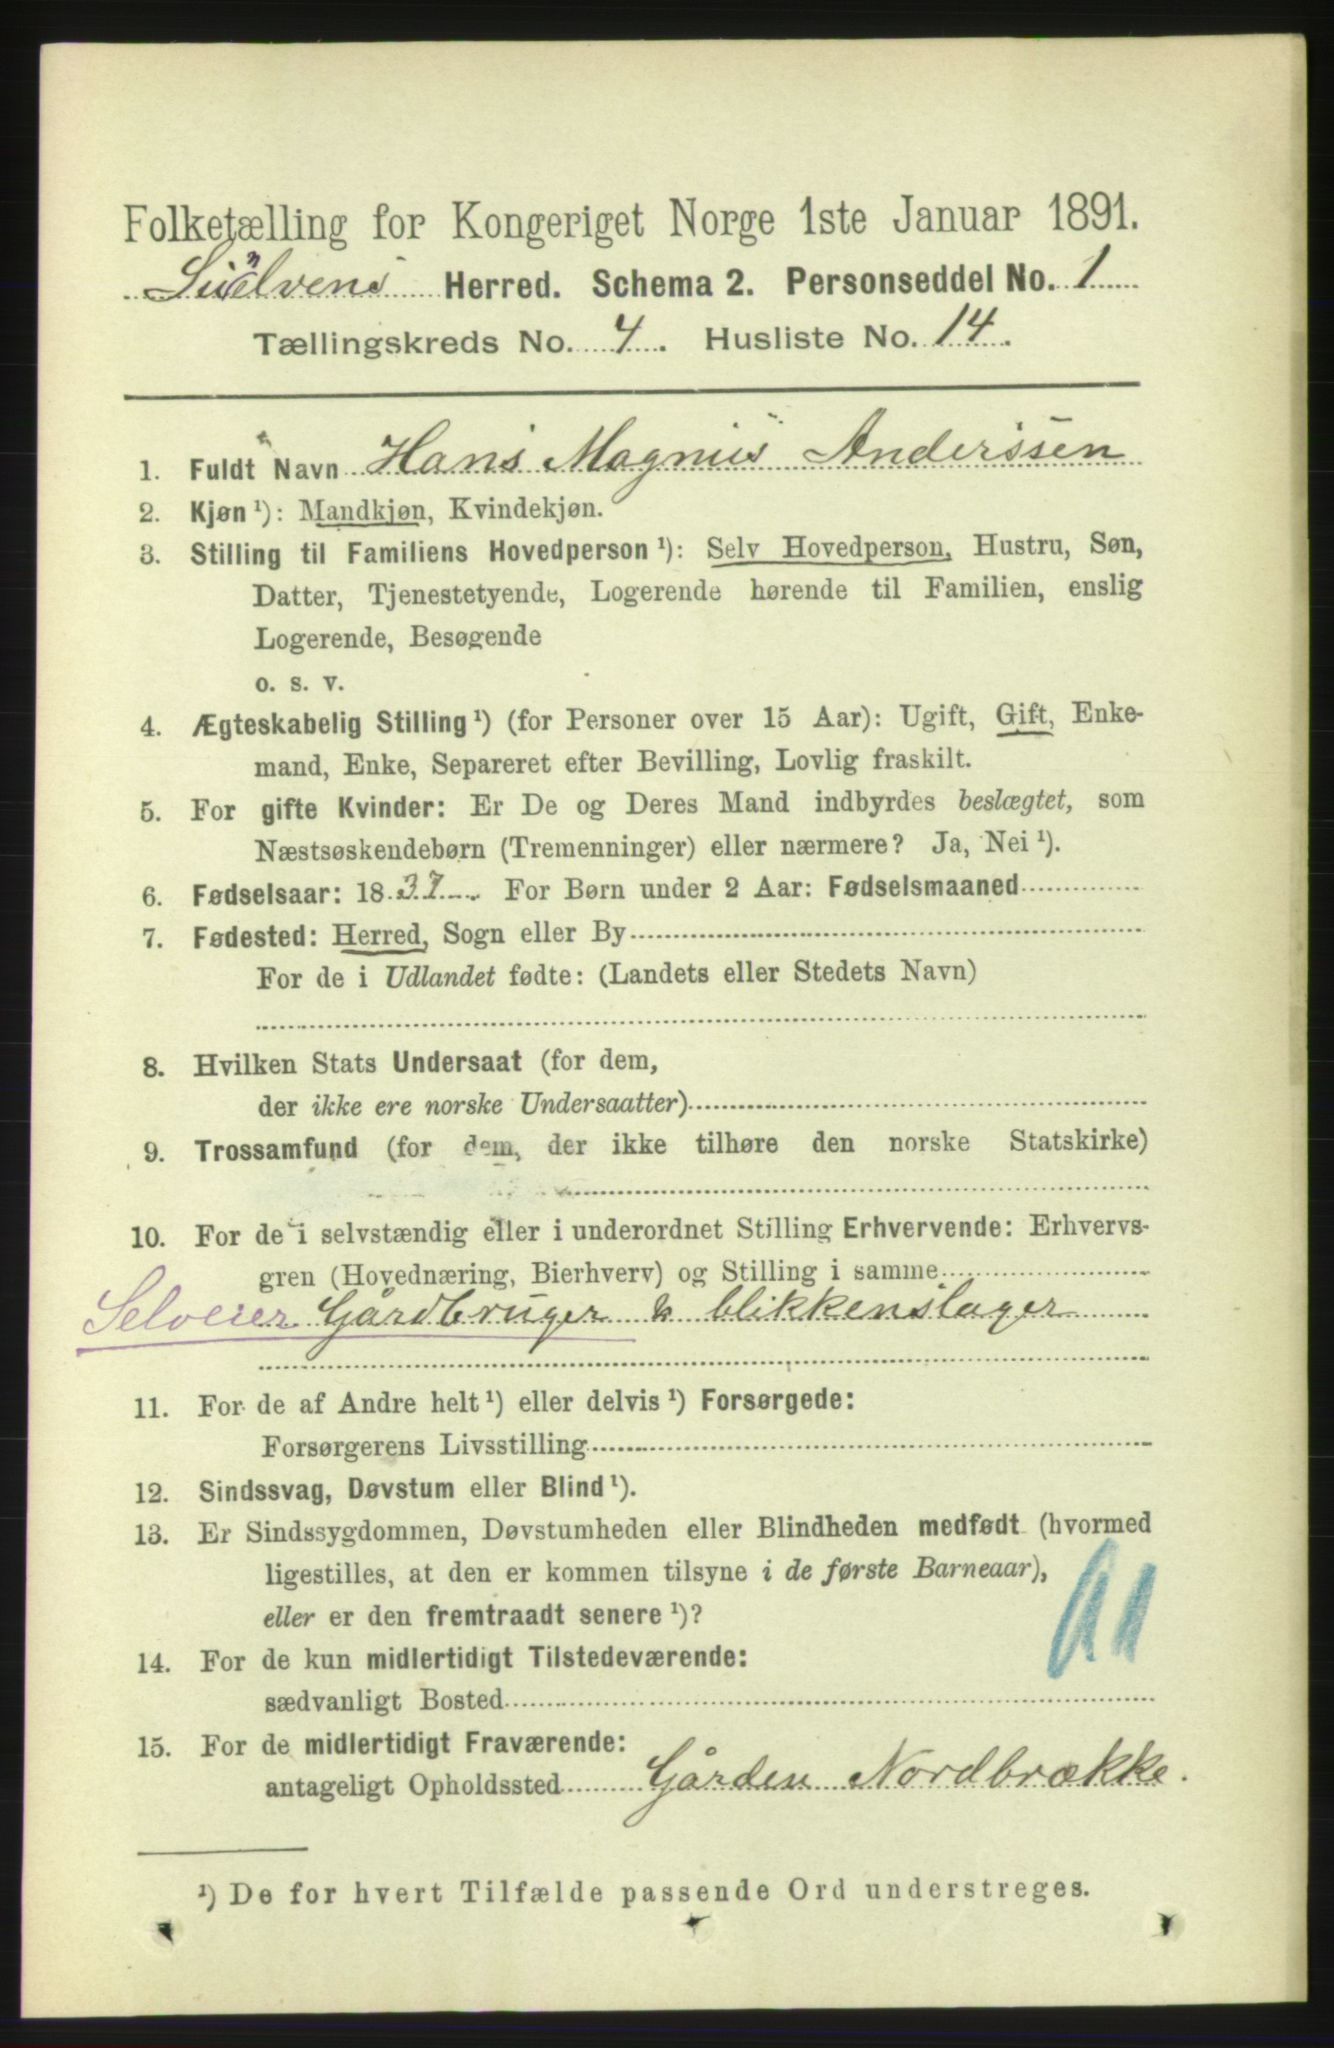 Folketælling for Kongeriget Norge 1ste Januar 1891.
Herred. Schema 2. Personseddel No. 1
Tællingskreds No. 4. Husliste No. 14.
1. Fuldt Navn Hans Magnus Anderssen
2. Kjøn ¹): Mandkjøn, Kvindekjøn.
3. Stilling til Familiens Hovedperson ¹): Selv Hovedperson, Hustru, Søn,
Datter, Tjenestetyende, Logerende hørende til Familien, enslig
Logerende, Besøgende
o. s. v.
4. Ægteskabelig Stilling ¹) (for Personer over 15 Aar): Ugift, Gift, Enke-
mand, Enke, Separeret efter Bevilling, Lovlig fraskilt.
5. For gifte Kvinder: Er De og Deres Mand indbyrdes beslægtet, som
Næstsøskendebørn (Tremenninger) eller nærmere? Ja, Nei ¹).
6. Fødselsaar: 1837. For Børn under 2 Aar: Fødselsmaaned
7. Fødested: Herred, Sogn eller By
For de i Udlandet fødte: (Landets eller Stedets Navn)
8. Hvilken Stats Undersaat (for dem,
der ikke ere norske Undersaatter)
9. Trossamfund (for dem, der ikke tilhøre den norske Statskirke)
10. For de i selvstændig eller i underordnet Stilling Erhvervende: Erhvervs-
gren (Hovednæring, Bierhverv) og Stilling i samme
Selveier Gårdbruger & blikkenslager
11. For de af Andre helt ¹) eller delvis ¹) Forsørgede:
Forsørgerens Livsstilling
12. Sindssvag, Døvstum eller Blind ¹).
13. Er Sindssygdommen, Døvstumheden eller Blindheden medfødt (hvormed
ligestilles, at den er kommen tilsyne i de første Barneaar),
eller er den fremtraadt senere ¹)?
14. For de kun midlertidigt Tilstedeværende:
sædvanligt Bosted
15. For de midlertidigt Fraværende:
antageligt Opholdssted Gården Nordbrække.
¹) De for hvert Tilfælde passende Ord understreges.